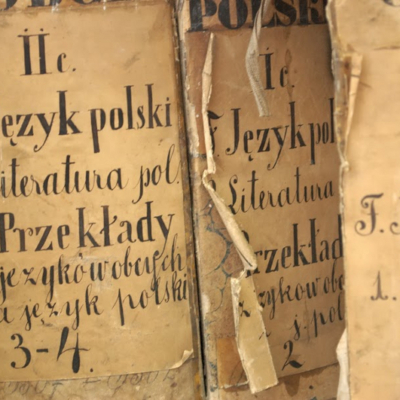 IIc.
ęzyk polski
iteratura pol.
Przekłady
języków obcych
a język polski
3-4.
POLSK
Ic.
F Język pol
Literatura
rzekład
z języków obc
2
F.
1.